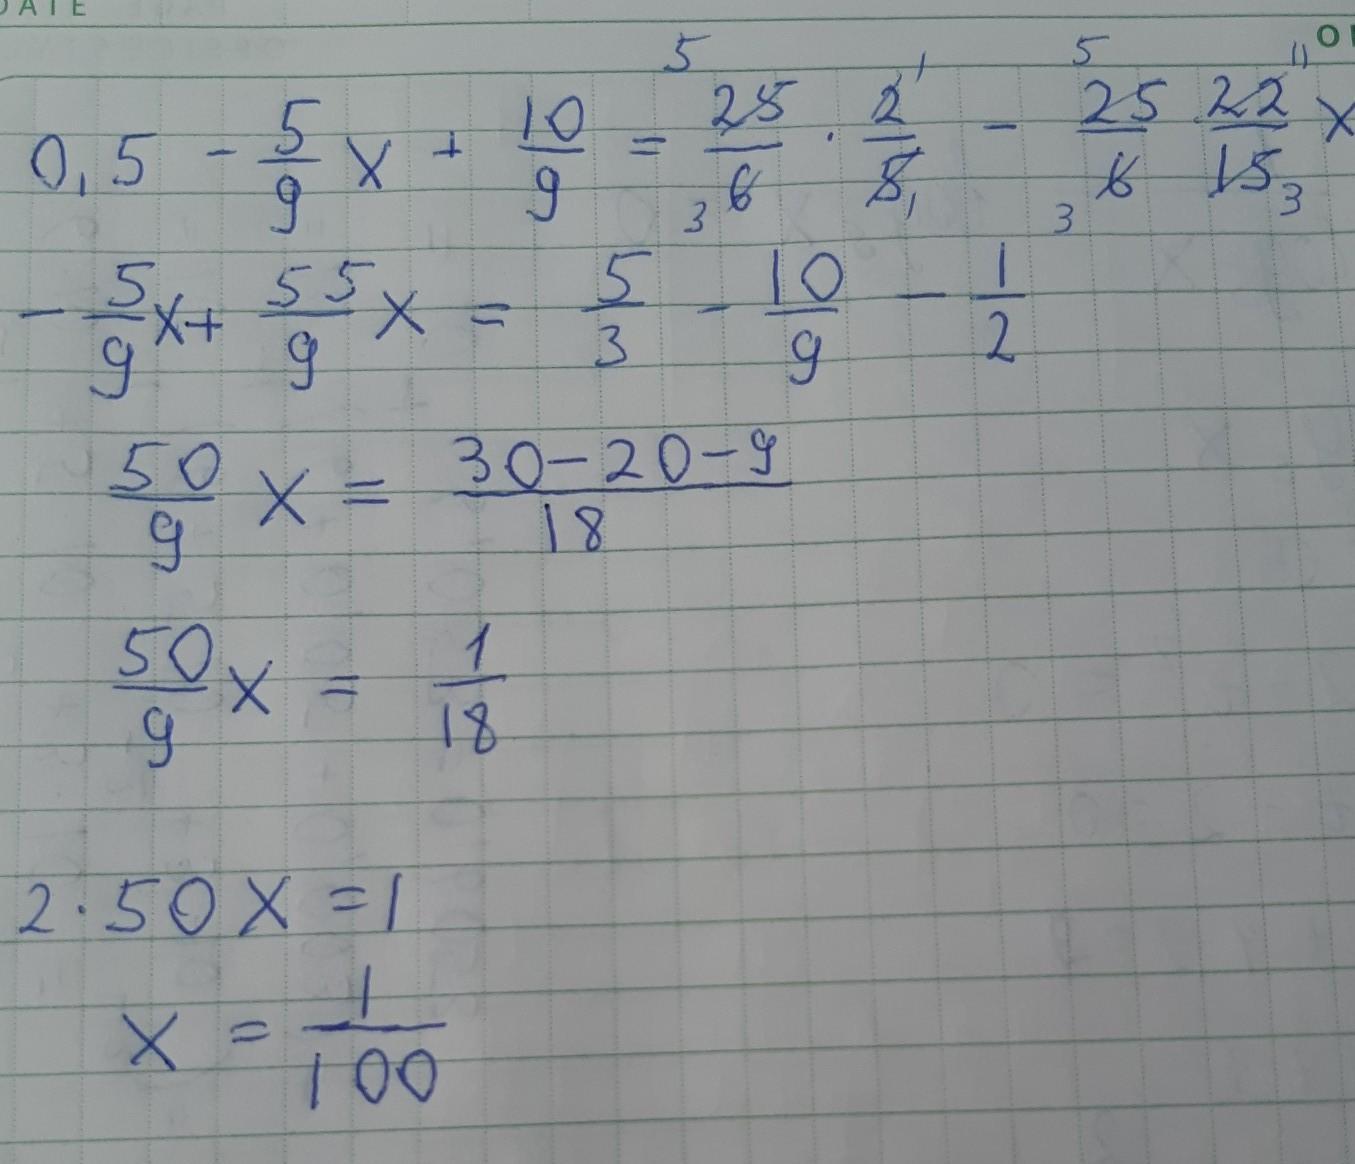 DATE
0,5 - 5/9 x + 10/9 = 25/6 · 2/5 - 25/6 · 22/15 x
- 5/9 x + 55/9 x = 5/3 - 10/9 - 1/2
50/9 x = (30-20-9)/18
50/9 x = 1/18
2·50x=1
x = 1/100